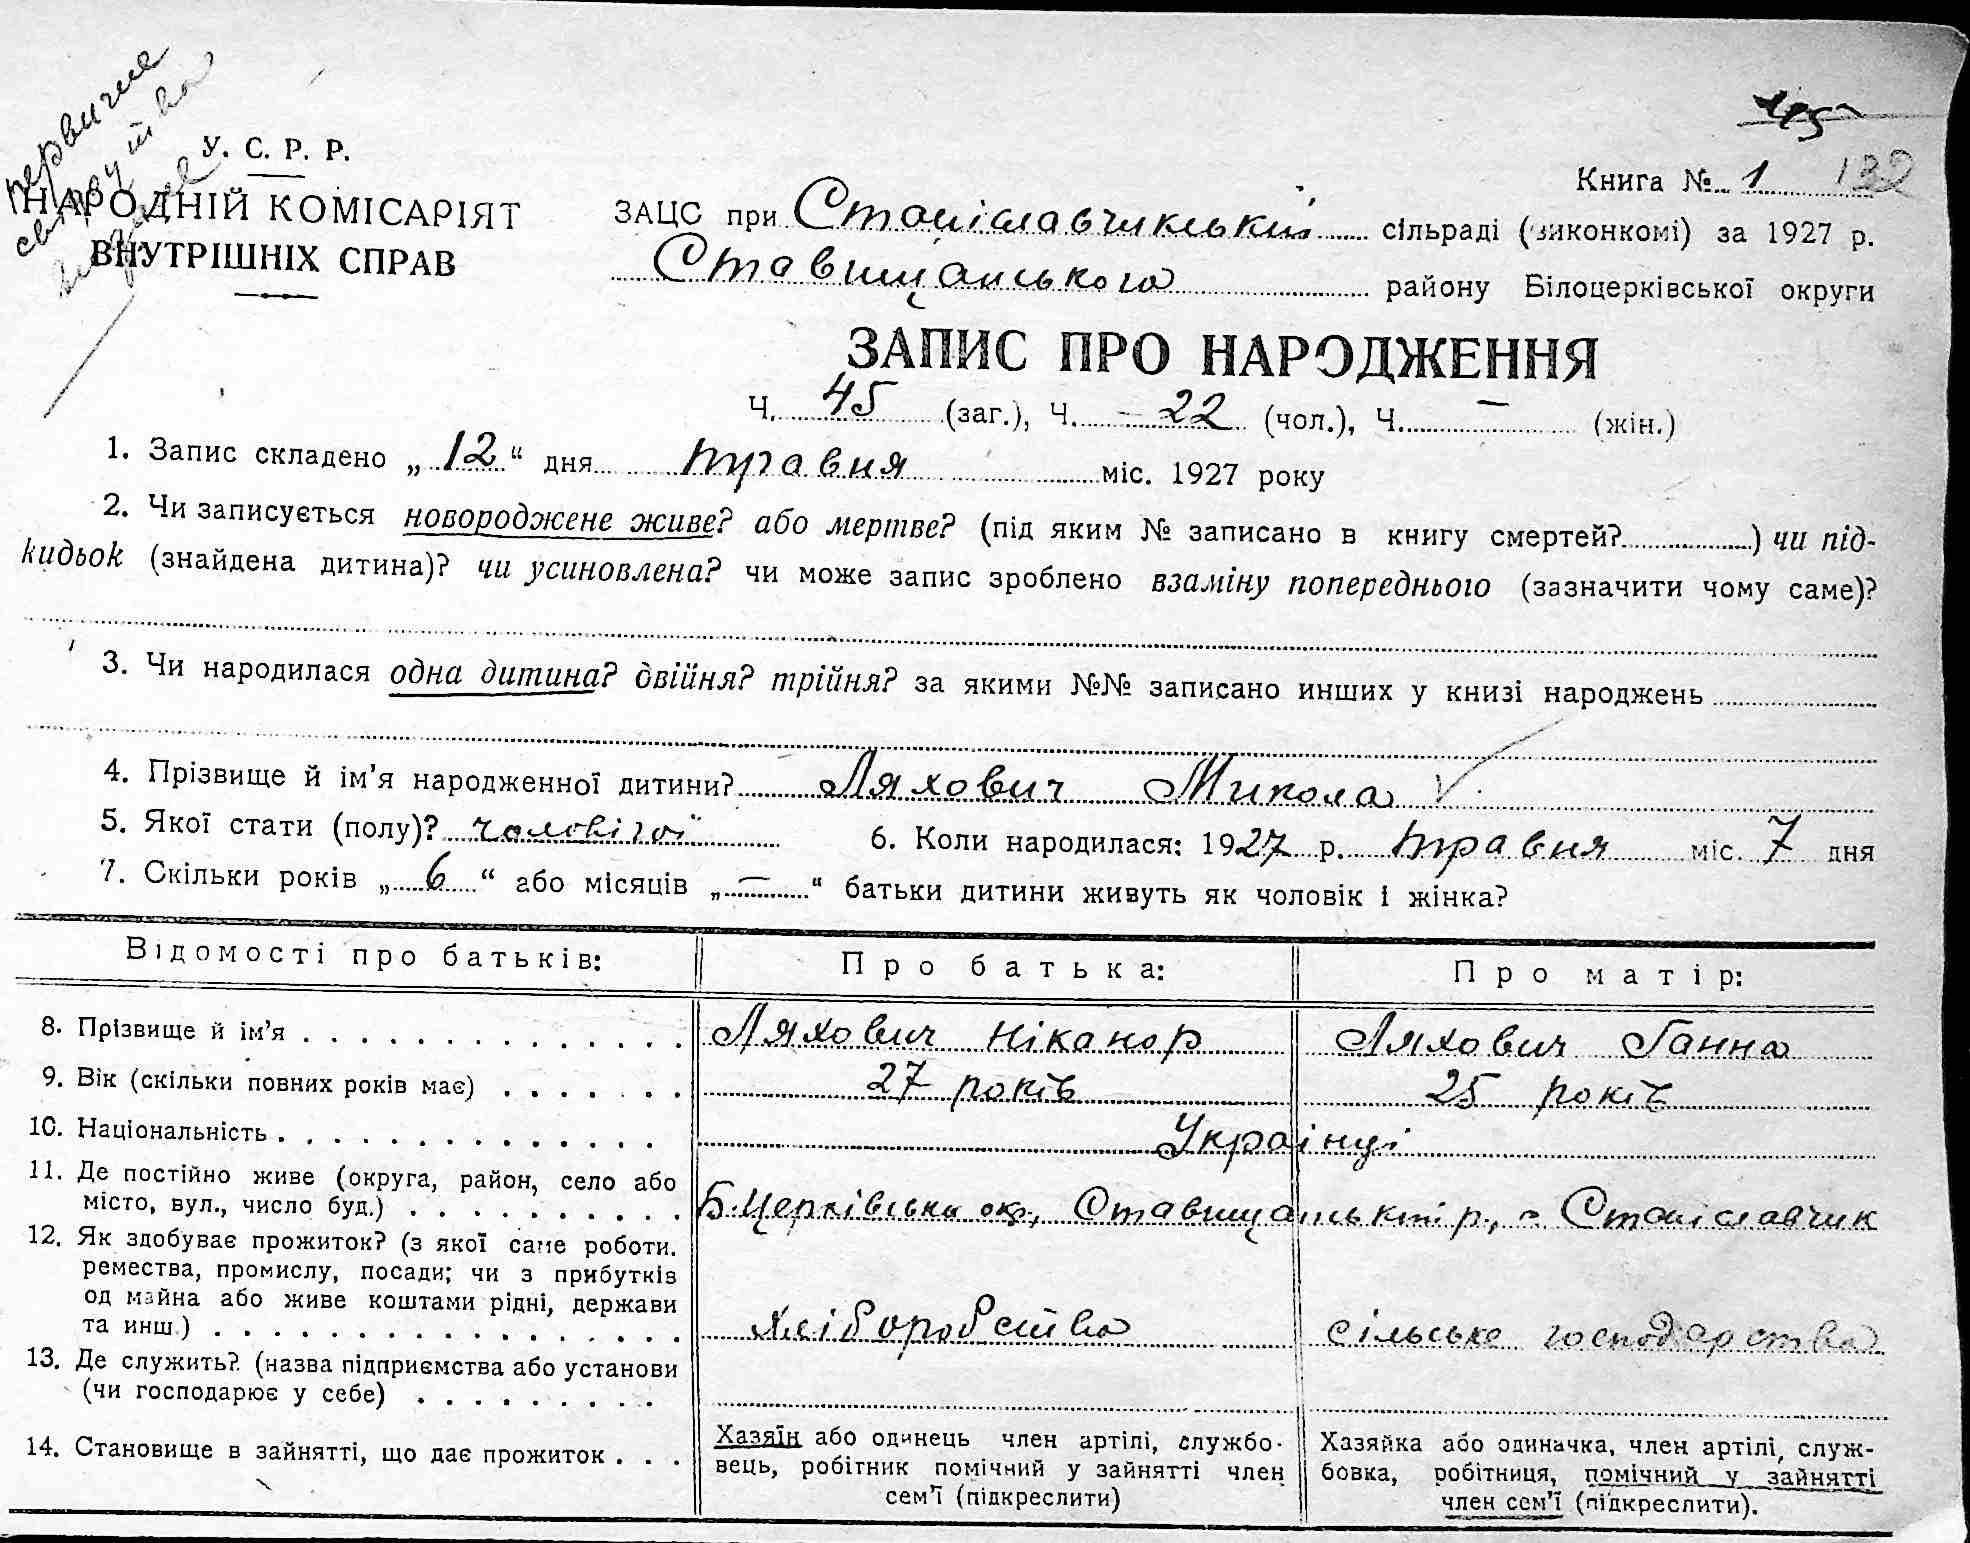 первичне
свідоцтво
видане
195
У. С. Р. Р.
НАРОДНІЙ КОМІСАРІЯТ
ВНУТРІШНІХ СПРАВ
Книга № 1 132
ЗАЦС при Станіславчикській сільраді (виконкомі) за 1927 р.
Ставищанського району Білоцерківської округи
ЗАПИС ПРО НАРОДЖЕННЯ
Ч. 45 (заг.), Ч. - 22 (чол.), Ч. — (жін.)
1. Запис складено „12“ дня травня міс. 1927 року
2. Чи записується новороджене живе? або мертве? (під яким № записано в книгу смертей?) чи під-
кидьок (знайдена дитина)? чи усиновлена? чи може запис зроблено взаміну попереднього (зазначити чому саме)?
3. Чи народилася одна дитина? двійня? трійня? за якими №№ записано инших у книзі народжень
4. Прізвище й ім’я народженної дитини? Ляхович Микола
5. Якої стати (полу)? чоловічої 6. Коли народилася: 1927 р. травня міс. 7 дня
7. Скільки років „6“ або місяців „—“ батьки дитини живуть як чоловік і жінка?
Відомості про батьків: Про батька: Про матір:
8. Прізвище й ім’я Ляхович Ніканор Ляхович Ганна
9. Вік (скільки повних років має) 27 років 25 років
10. Національність Українці
11. Де постійно живе (округа, район, село або
місто, вул., число буд.) Б.Церківська окр., Ставищанський р., с Станіславчик
12. Як здобуває прожиток? (з якої саме роботи.
ремества, промислу, посади; чи з прибутків
од майна або живе коштами рідні, держави
та инш.) Хліборобство сільське господарство
13. Де служить? (назва підприємства або установи
(чи господарює у себе)
14. Становище в зайнятті, що дає прожиток . . .
Хазяїн або одинець член артілі, службо-
вець, робітник помічний у зайнятті член
сем’ї (підкреслити)
Хазяйка або одиначка, член артілі, служ-
бовка, робітниця, помічний у зайнятті
член сем’ї (підкреслити).